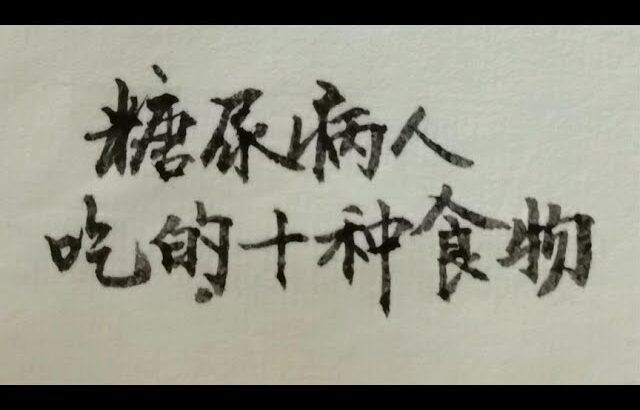 糖尿病人
吃的十种食物